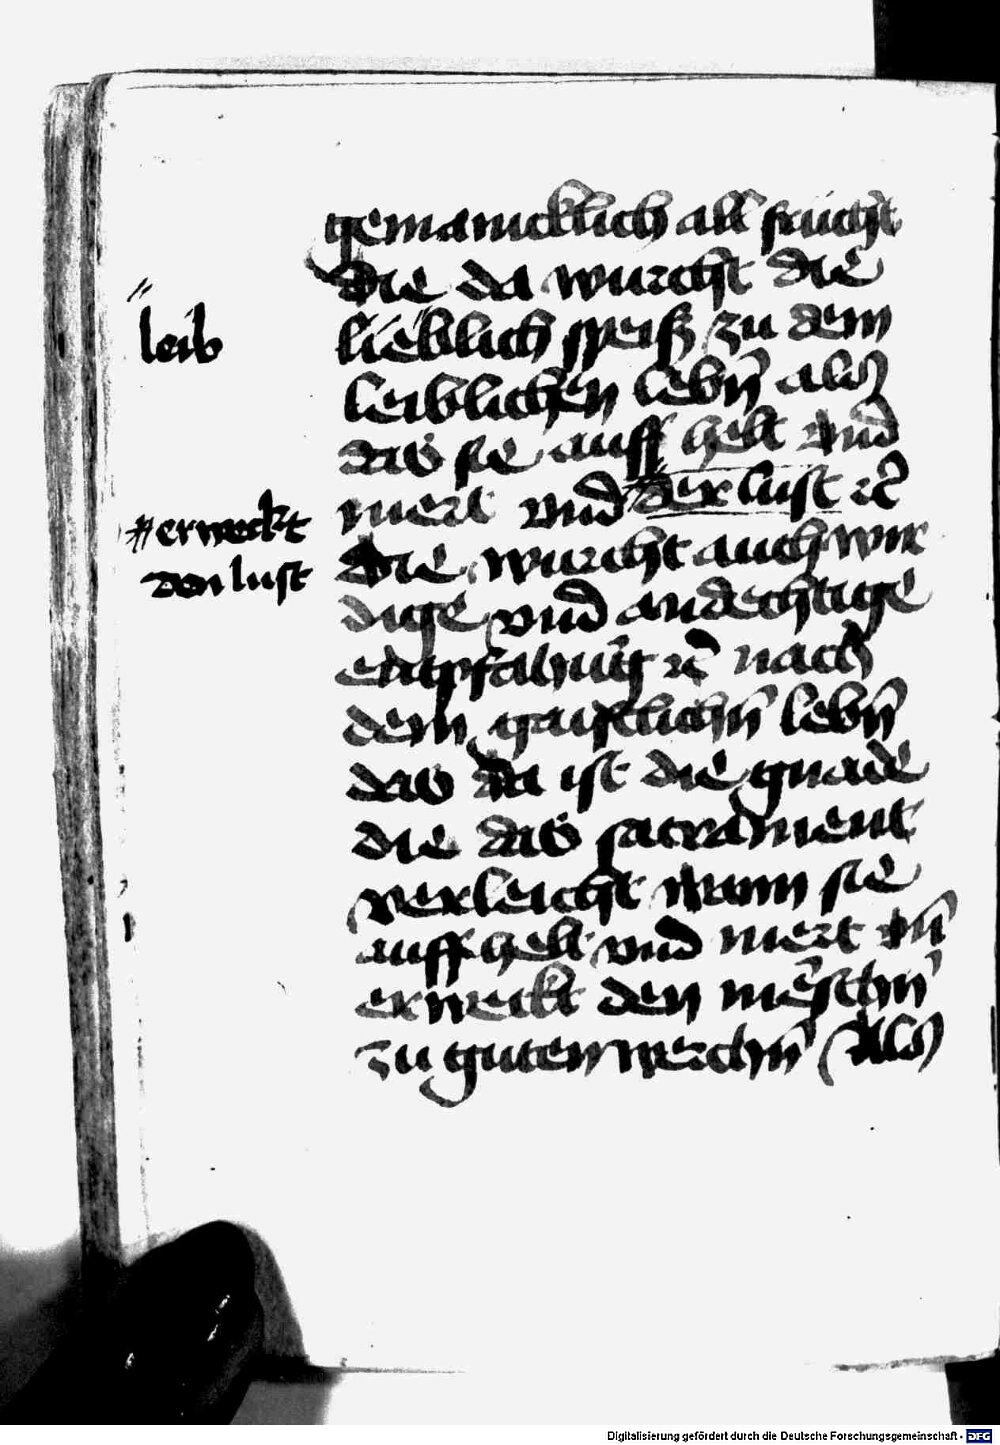 gemainicklich all frücht
die da würcht die
lieblich speiß zu dem
leiblichen lebn̄ als
das sie auff helt vnd
mert vnd der lust ꝛc̄
die würcht auch wir
dige vnd andechtige
entpfahūg ꝛc̄ nach
dem gaistlichn̄ lebn̄
das da ist die gnade
die das sacrament
verleicht wann sie
auff helt vnd mert vn̄
erweckt den mēschn̄
zu guten werchn̄ Als
〃
leib
⌗ erweckt
den lust
Digitalisierung gefördert durch die Deutsche Forschungsgemeinschaft - DFG